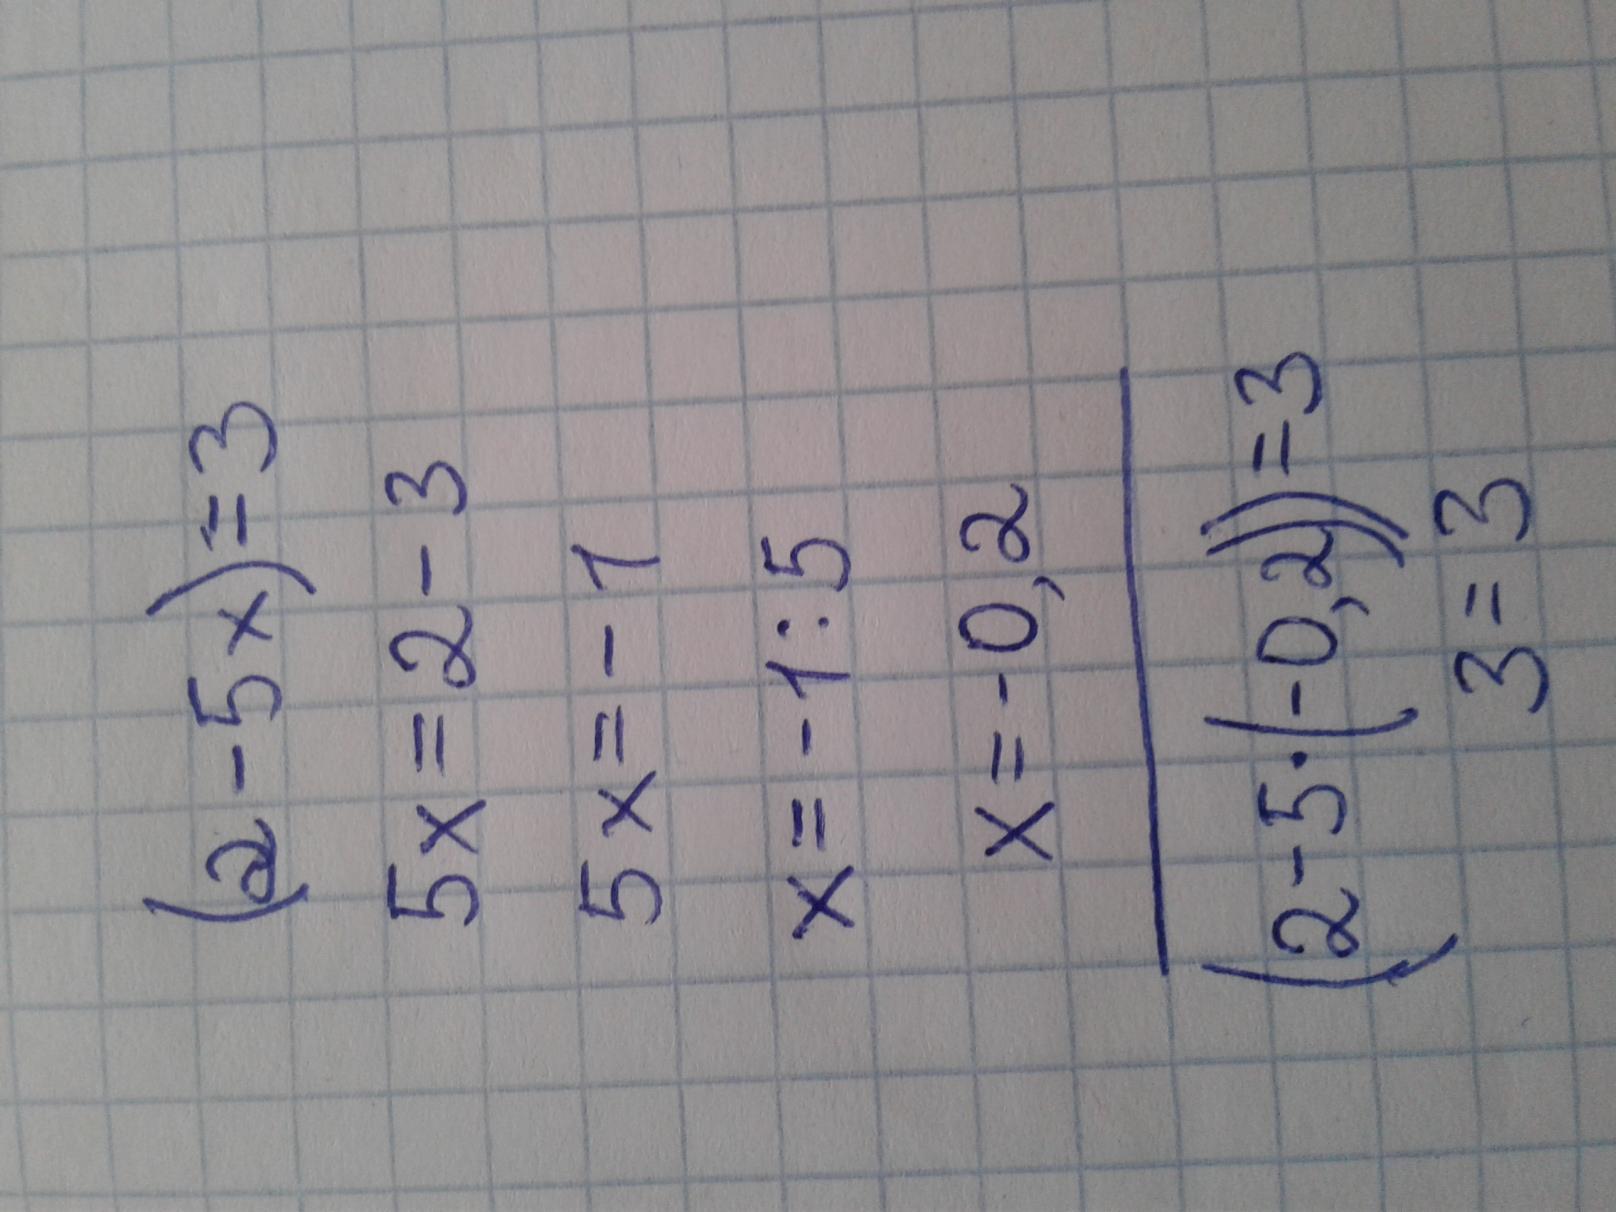 (2-5x)=3
5x=2-3
5x=-1
x=-1:5
x=-0,2
(2-5·(-0,2))=3
3=3